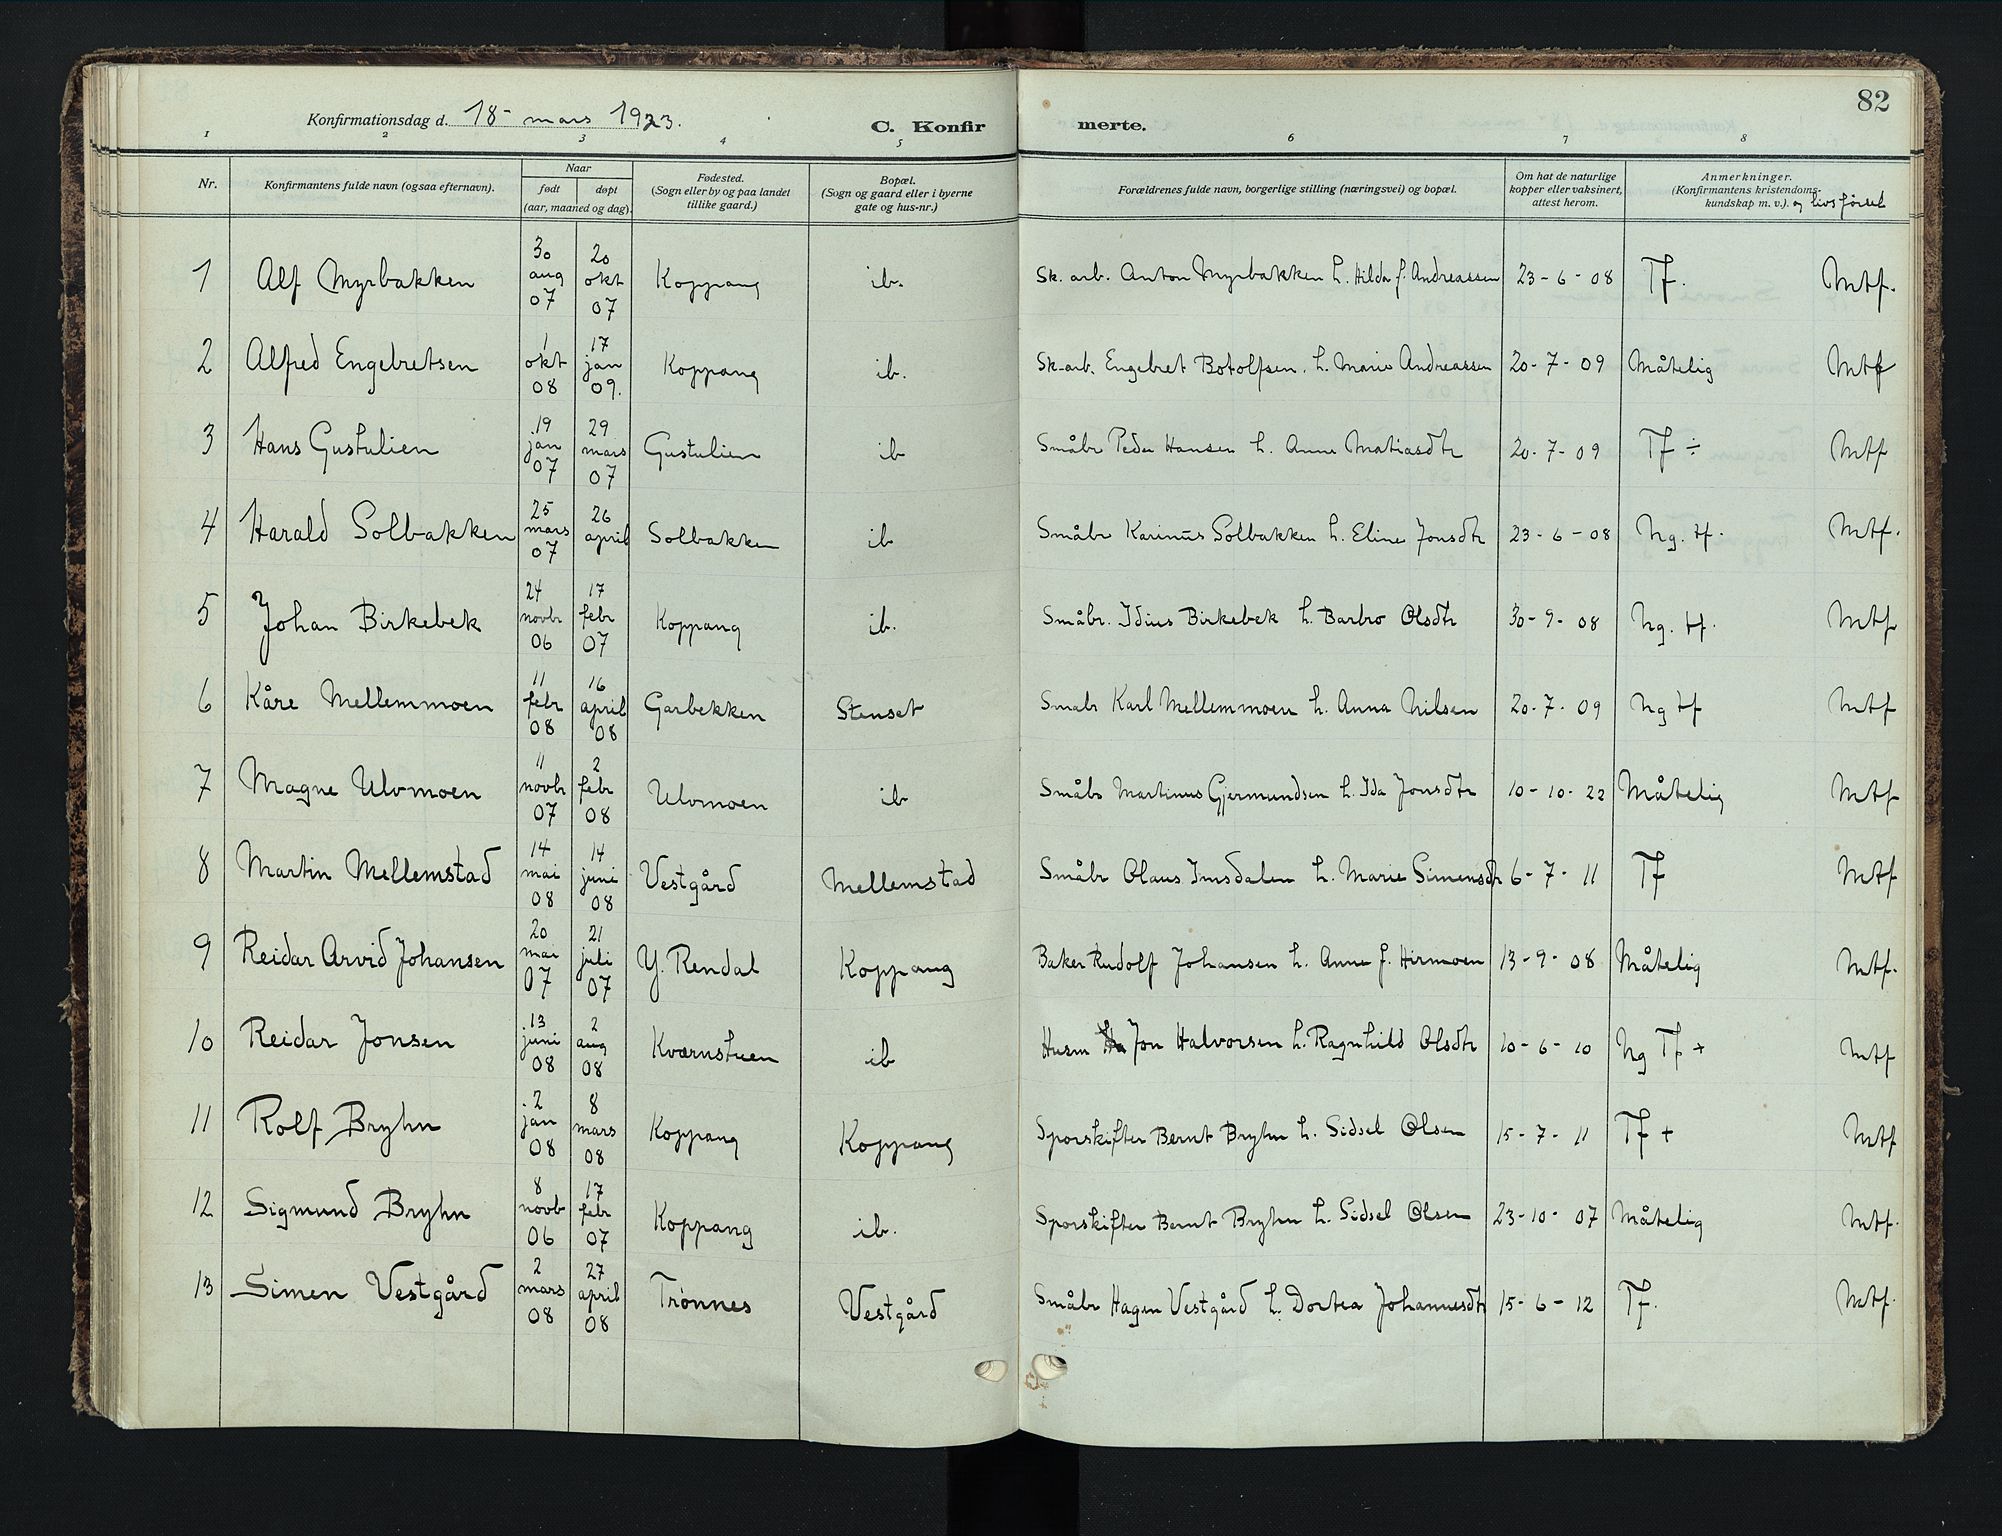 82
Konfirmationsdag d. 18- mars 1923.
C. Konfir merte.
1 2 3 4 5 6 7 8
Nr. Konfirmantens fulde navn (ogsaa efternavn). Naar født døpt (aar, maaned og dag). Fødested. (Sogn eller by og paa landet tillike gaard.) Bopæl. (Sogn og gaard eller i byerne gate og hus-nr.) Forældrenes fulde navn, borgerlige stilling (næringsvei) og bopæl. Om hat de naturlige kopper eller vaksinert, attest herom. Anmerkninger. (Konfirmantens kristendoms-kundskap m. v.). og livsførsel
1 Alf Myrbakken 30 aug 07 20 okt 07 Koppang ib. Sk. arb. Anton Myrbakken h. Hilda f. Andreassen 23-6-08 Tf. Mtf.
2 Alfred Engebretsen 1 okt 08 17 jan 09. Koppang ib. Sk-arb. Engebret Botolfsen. h. Marie Andreassen 20-7-09 Måtelig Mtf
3 Hans Gustulien 19 jan 07 29 mars 07 Gustulien ib Småbr Peder Hansen h. Anne Matiasdtr 20-7-09 Tf ÷ Mtf
4 Harald Solbakken 25 mars 07 26 april Solbakken ib Småbr Karinus Solbakken h. Eline Jonsdtr 23-6-08 Ng. tf. Mtf.
5 Johan Birkebek 24 novbr 06 17 febr 07 Koppang ib. Småbr. Idius Birkebek h. Barbro Olsdtr 30-9-08 Ng. tf. Mtf
6 Kåre Mellemmoen 11 febr 08 16 april 08 Garbekken Stenset Smabr Karl Mellemmoen h. Anna Nilsen 20-7-09 Ng tf Mtf
7 Magne Ulvmoen 11 novbr 07 2 febr 08 Ulvmoen ib Småbr Martinus Gjermundsen h. Ida Jonsdtr 10-10-22 Måtelig Mtf
8 Martin Mellemstad 14 mai 08 14 juni 08 Vestgård Mellemstad Småbr Olaus Imsdalen h. Marie Simensdtr 6-7-11 Tf Mtf
9 Reidar Arvid Johansen 20 mai 07 21 juli 07 Y. Rendal Koppang Baker Rudolf Johansen h. Anne f. Hirmoen 13-9-08 Måtelig Mtf.
10 Reidar Jonsen 13 juni 08 2 aug 08 Kværnstuen ib Husm Jon Halvorsen h. Ragnhild Olsdtr 10-6-10 Ng Tf + Mtf
11 Rolf Bryhn 2 jan 08 8 mars 08 Koppang Koppang Sporskifter Bernt Bryhn h. Sidsel Olsen 15-7-11 Tf + Mtf
12 Sigmund Bryhn 8 novb 06 17 febr 07 Koppang ib. Sporskifter Bernt Bryhn h. Sidsel Olsen 23-10-07 Måtelig Mtf.
13 Simen Vestgård 2 mars 08 27 april 08 Trønnes Vestgård Småbr Hagen Vestgård h. Dortea Johannesdtr 15-6-12 Tf. Mtf.